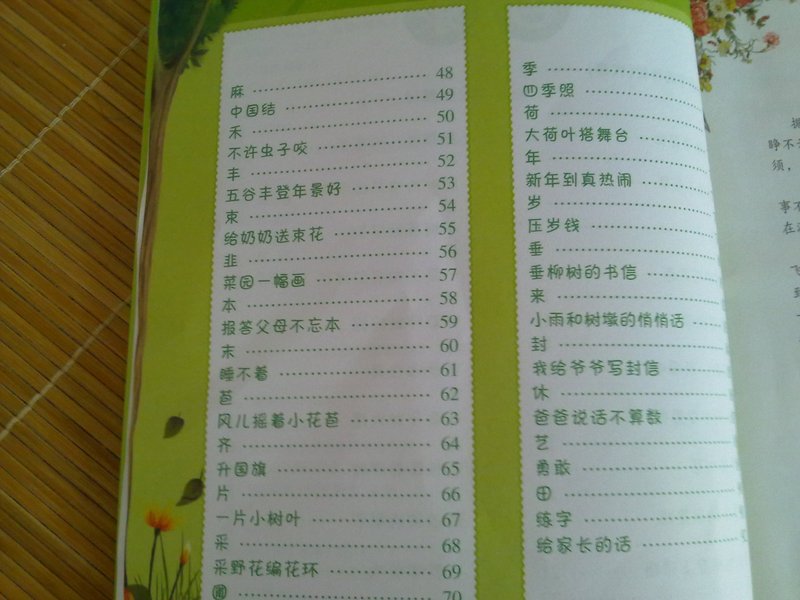 麻 48
中国结 49
禾 50
不许虫子咬 51
丰 52
五谷丰登年景好 53
束 54
给奶奶送束花 55
韭 56
菜园一幅画 57
本 58
报答父母不忘本 59
末 60
睡不着 61
苞 62
风儿摇着小花苞 63
齐 64
升国旗 65
片 66
一片小树叶 67
采 68
采野花编花环 69
圃 70
季
四季照
荷
大荷叶搭舞台
年
新年到真热闹
岁
压岁钱
垂
垂柳树的书信
来
小雨和树墩的悄悄话
封
我给爷爷写封信
休
爸爸说话不算数
艺
勇敢
田
练字
给家长的话
睁不
须，
事不
在